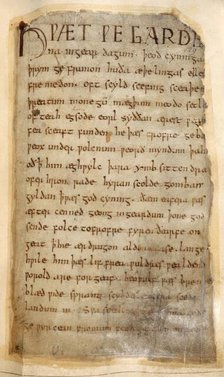 HǷÆT ǷE GARDE
na ingear dagum. þeod cyninga
þrym ge frunon huða æþelingas elle
fremedon. oft scyld scefing sceaþe
þreatum monegū mægþum meodo setla
of teah egsode eorl syððan ærest ƿear
fea sceaft funden he þæs frofre geba
ƿeox under ƿolcnum ƿeorð myndum þah
oð ꝥ him æghƿylc þara ymb sittendra
ofer hron rade hyran scolde gomban
gyldan ꝥ ƿæs god cyning. ðæm eafera ƿæs
æfter cenned geong in geardum þone god
sende folce tofrofre fyren ðearfe on
geat ꝥ hie ær drugon aldor ase. lange
hƿile him þæs lif frea ƿuldres ƿealdend
ƿorold are for geaf. beoƿulf ƿæs breme
blæd ƿide sprang scyldes eafera scede
landum in. sƿa sceal
ge ƿyrcean fromum feoh giftum